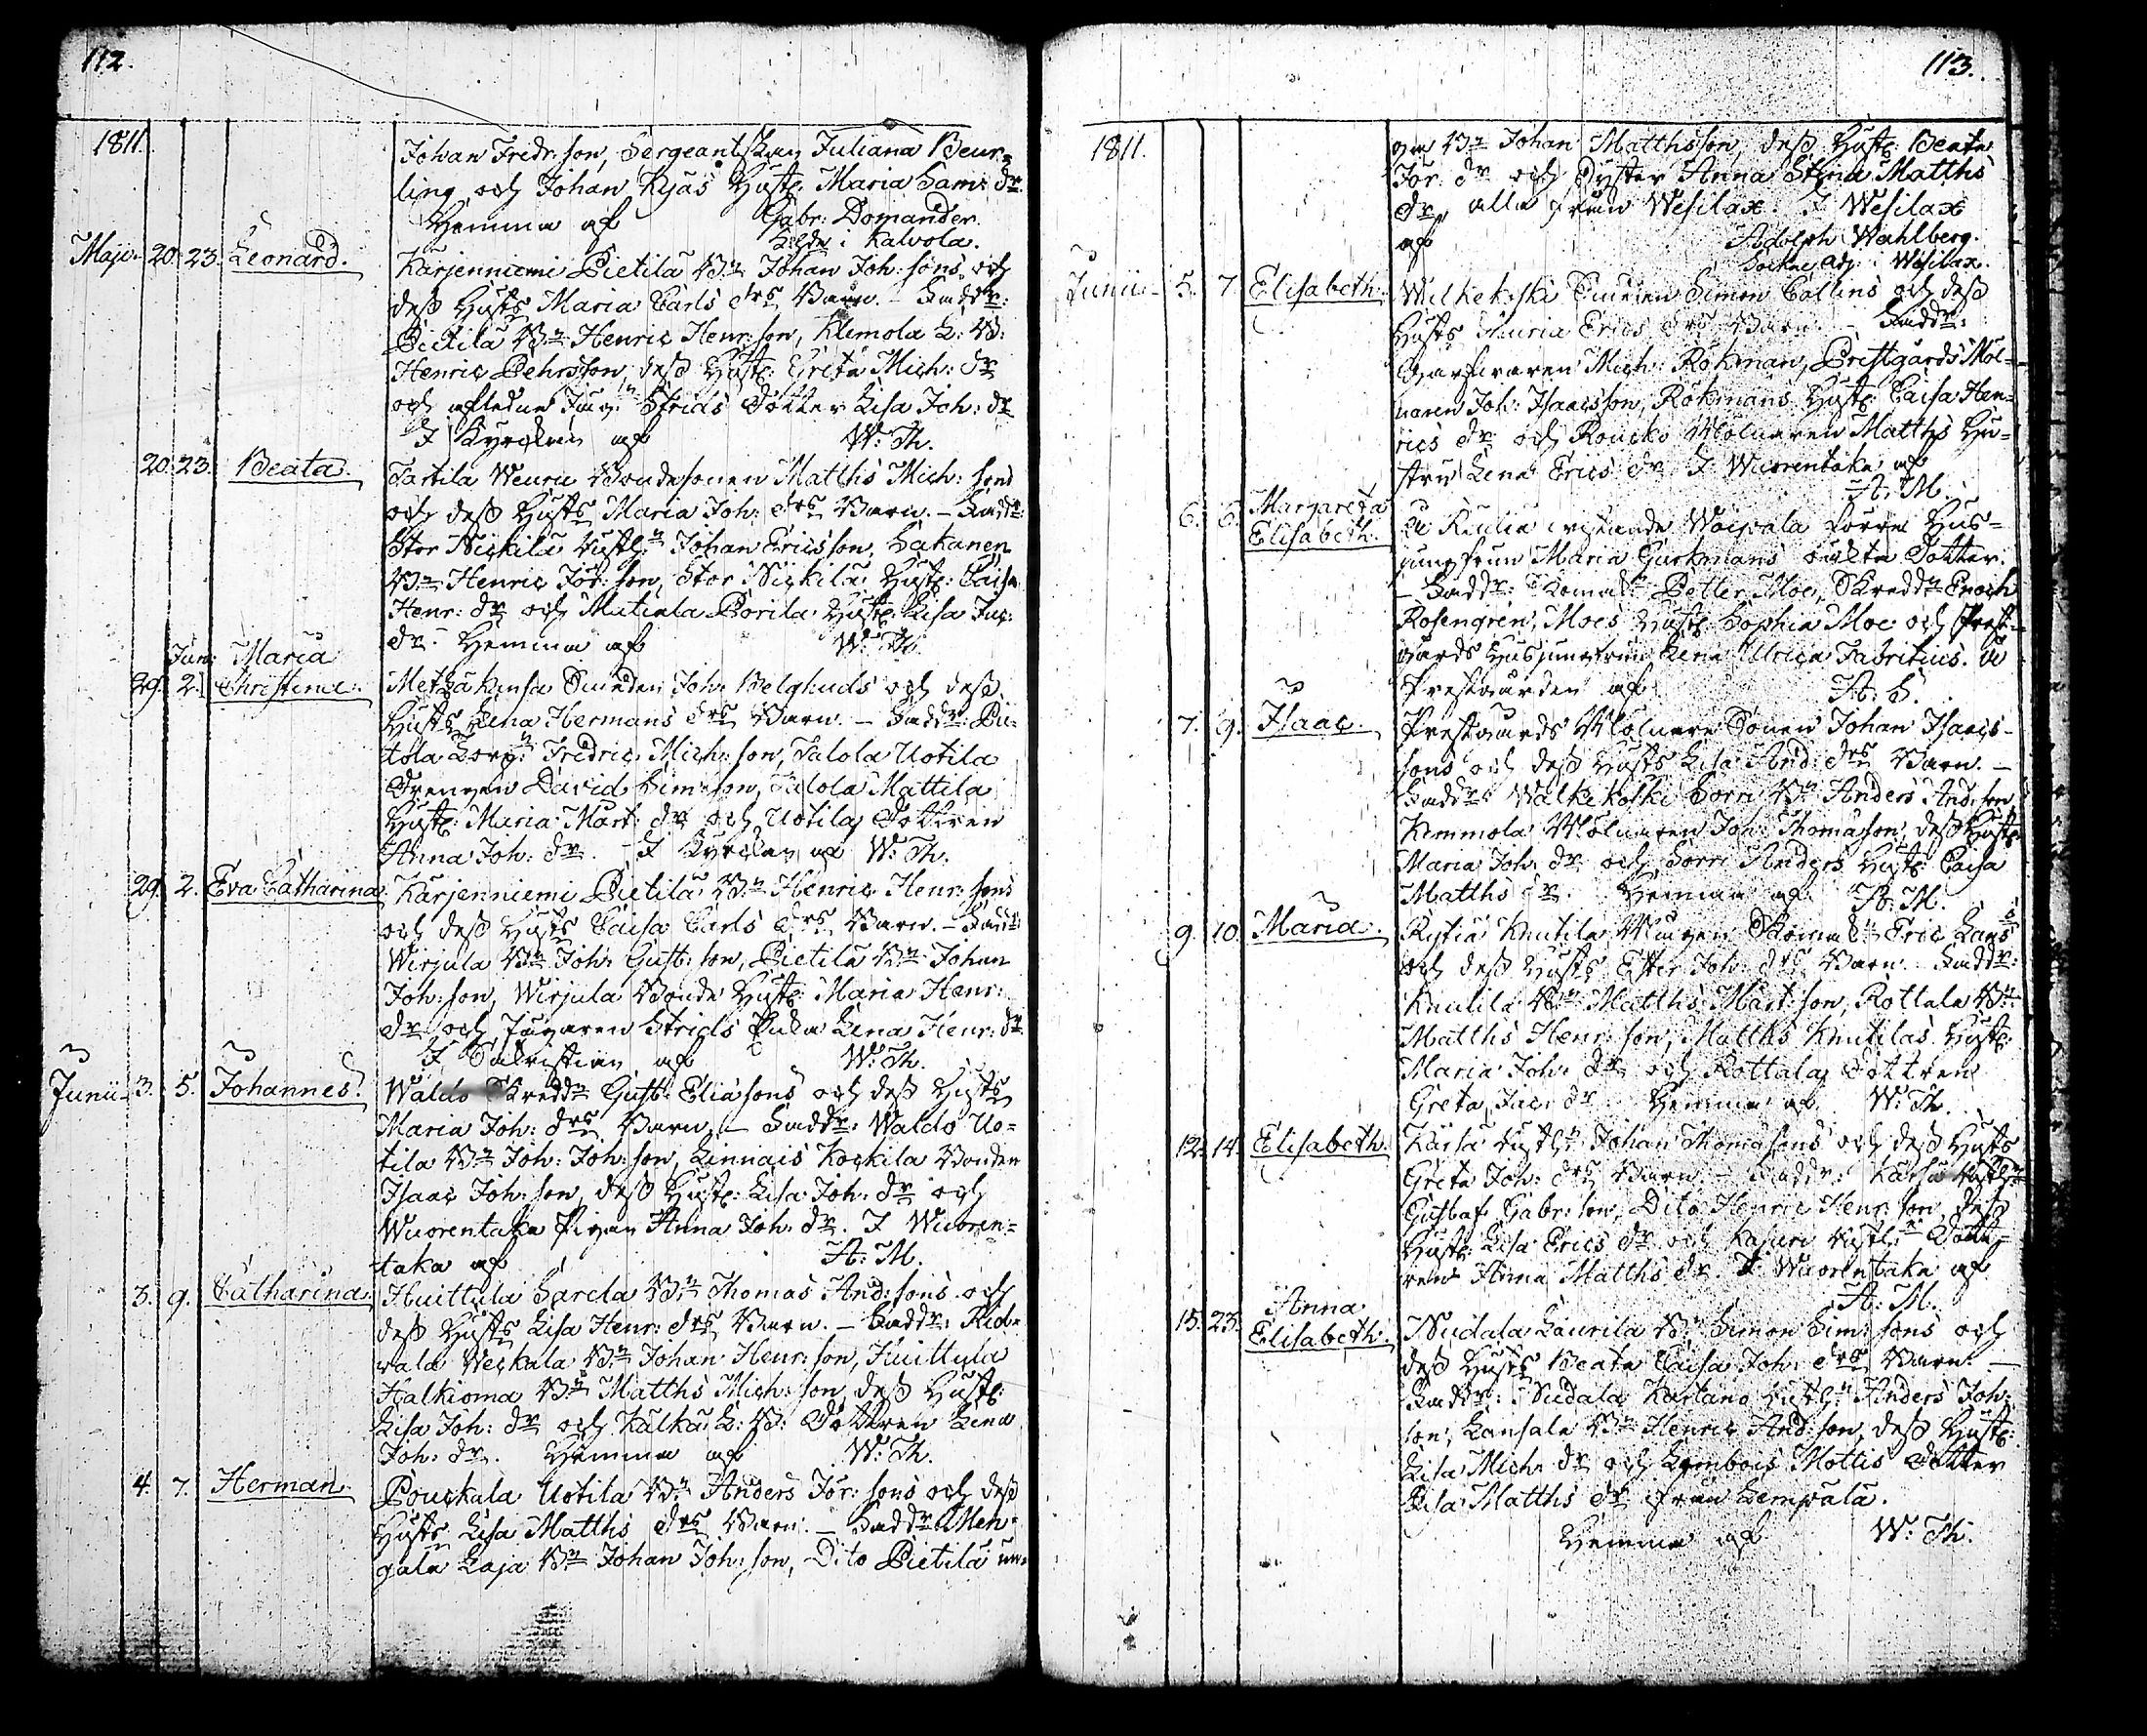 112.
1811.
Johan Fredr: son, Sergeantskan Juliana Beur-
ling och Johan Kyäs Hustr: Maria Sam: dr.
Hemma af Gabr: Domander.
i Kalvola.
Maji. 20. 23. Leonard. Karjenniemi Pietilä Bn Johan Joh: sons och
dess Hustrs Maria Carls drs Barn. – Faddr:
Pietilä Bn Henric Henr: son, Klemola L: B:
Henric Pehrsson, dess Hustr: Greta Mich: dr
och afledne Strids Dotter Lisa Joh: dr
I Kyrckan af W: Th.
20. 23. Beata. Tartila Wenru Bondesonen Matths Mich: sons
och dess Hustrs Maria Joh: drs Barn. – Faddr:
Stor Nickilä Johan Ericsson, Sakanen
Bn Henric Jör: son, Stor Nickilä Hustr: Caisa
Henr: dr och Matinla Porila Hustr: Lisa Jac:
dr. Hemma af W: Th.
29. Jun: 2. Maria Christina. Metzäkansa Joh: Belghuds och dess
Hustrs Lena Hermans drs Barn. – Faddr: Pie-
tola Fredric Mich: son, Jalola Uotila
Drengen David Sim: son, Jalola Mattila
Hustr: Maria Mårt: dr och Uotila Dottren
Anna Joh: dr. I Kyrckan af W: Th.
29. 2. Eva Catharina. Karjenniemi Pietilä Bn Henric Henr: sons
och dess Hustrs Caisa Carls drs Barn. – Faddr:
Wirjula Bn Joh: Gust: son, Pietilä Bn Johan
Joh: son, Wirjula Bonde Hustr: Maria Henr:
dr och Strids Lena Henr: dr
I Sakristian af W: Th.
Junii. 3. 5. Johannes. Waldo Skreddn Gust: Eliäsons och dess Hustrs
Maria Joh: drs Barn. – Faddr: Waldo Uo-
tila Bn Joh: Joh: son, Linnais Kockila Bonden
Isaac Joh: son, dess Hustr: Lisa Joh: dr och
Wuorentaka Pigan Anna Joh: dr. I Wuoren-
taka af A: M.
3. 9. Catharina. Huittula Sarela Bn Thomas And: sons och
dess Hustrs Lisa Henr: drs Barn. – Faddr: Rid-
vala Weckala Bn Johan Henr: son, Huittula
Halkioma Bn Matths Mich: son, dess Hustr:
Lisa Joh: dr och Kalka L: B: Dottren Lena
Joh: dr. Hemma af W: Th.
4. 7. Herman. Pouckala Uotila Bn Anders Jör: sons och dess
Hustrs Lisa Matths drs Barn. – Faddr: Men-
gala Laja Bn Johan Joh: son, Dito Pietilä un-
113.
1811.
gn Bn Johan Matthsson, dess Hustr: Beata
Jör: dr och Syster Anna Stina Matths
dr, alla från Wesilax. I Wesilax
af Adolph Wahlberg.
Sockne Adj: i Wesilax.
Junii. 5. 7. Elisabeth. Wilkekoski Simon Collins och dess
Hustrs Maria Erics drs Barn. – Faddr:
Garfvaren Mich: Rökman, Prestgårds Möl-
naren Joh: Isaacsson, Rökmans Hustr: Caisa Hen-
rics dr och Roucko Mölnaren Matths Hu-
stru Lena Erics dr I Wuorentaka af
A: M.
6. 6. Margareta Elisabeth. vistande Woipala förre Hus-
jungfrun Maria Gurkmans oäkta Dotter.
– Faddr: Petter Moe, Skreddn Enoch
Rosengren, Moes Hustr: Sophia Moe och Prest-
gårds Husjungfrun Lena Ulrica Fabritius. På
Prestgården af A: S.
7. 9. Isaac. Prestgårds Mölnare Sonen Johan Isaacs-
sons och dess Hustrs Lisa And: drs Barn. –
Faddr: Walkekoski Sorri Bn Anders And: son,
Kemmola Mölnaren Joh: Thomasson, dess Hustr:
Maria Joh: dr och Sorri Anders Hustr: Caisa
Matths dr. Hemma af A: M.
9. 10. Maria. Rytiä Knutila Skomakn Eric
och dess Hustrs Ester Joh: drs Barn. Faddr:
Knutila Bn Matths Mårt: son, Rottala Bn
Matths Henr: son, Matths Knutilas Hustr:
Maria Joh: dr och Rottala Dottren
Greta Jac: dr. Hemma af W: Th.
12. 14. Elisabeth. Kärsä Johan Thomasons och dess Hustrs
Greta Joh: drs Barn – Faddr: Kärsä
Gustaf Gabr: son, Dito Henric Henr: son, dess
Hustr: Lisa Erics dr och Kasuri Dott-
ren Anna Matths dr. I Wuorentaka af
A: M.
15. 23. Anna Elisabeth. Nudala Laurila Bn Simon Sim: sons och
dess Hustrs Beata Caisa Joh: drs Barn. –
Faddr: Nudala Kartano Anders Joh:
son, Lansala Bn Henric And: son, dess Hustr:
Lisa Mich: dr och Lembois Mottis Dotter
Lisa Matths dr från Lempälä.
Hemma af W: Th.